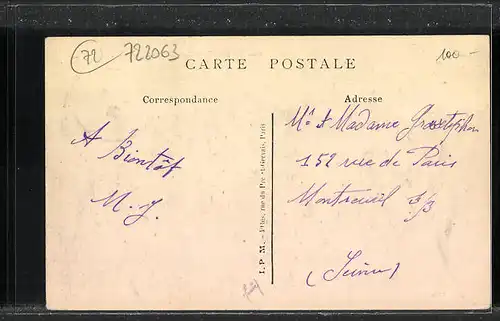 72
722063
100-
CARTE POSTALE
Correspondance
Adresse
A Bientôt
M. J.
Mr et Madame
152 rue de Paris
Montreuil s/s
(Seine)
I. P. M. rue du Pré-St-Gervais, Paris